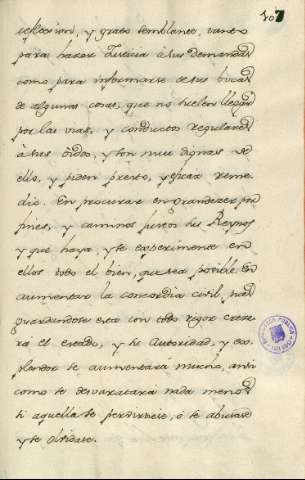 107
reflexion, y grato semblante, tanto
para hacer Justicia à sus demandas
como para informarse de sus bocas
de algunas cosas, que no suelen llegar
por las vias, y conductos regulares
à sus òidos, y son muy dignas de
ello, y piden presto, y eficaz reme-
dio. En procurar en grandecer por
fines, y caminos justos sus Reynos
y que haya, y se experimente en
ellos todo el bien, que sea posible En
aumentar la concordia civil, pues
guardandose esta con todo rigor crece-
rà el estado, y su Autoridad, y es-
plendor se aumentarà mucho, assi
como se desvaratarà nada menos
si aquella se perdiese, ò se abusase
y se olvidase.